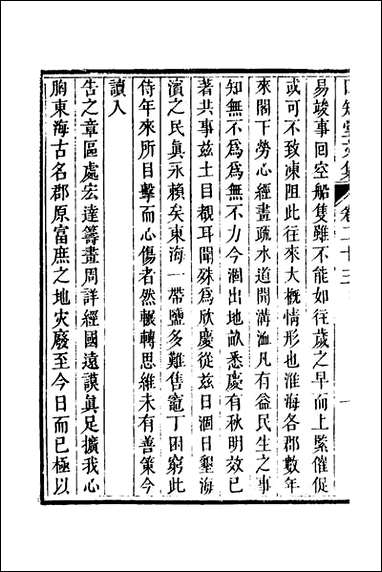 四知堂文集
卷二十三
一
易竣事回空船隻雖不能如往歲之早而上緊催促
或可不致凍阻此往來大概情形也淮海各郡數年
來閣下勞心經畫疏水道開溝洫凡有益民生之事
知無不為為無不力今涸出地畝悉慶有秋明效已
著共事茲土目覩耳聞殊為欣慶從茲日涸日墾海
濱之民眞永賴矣東海一帶鹽多難售竈丁困窮此
侍年來所目擊而心傷者然輾轉思維未有善策今
讀入
告之章區處宏達籌畫周詳經國遠謨眞足擴我心
胸東海古名郡原富庶之地灾廢至今日而已極以